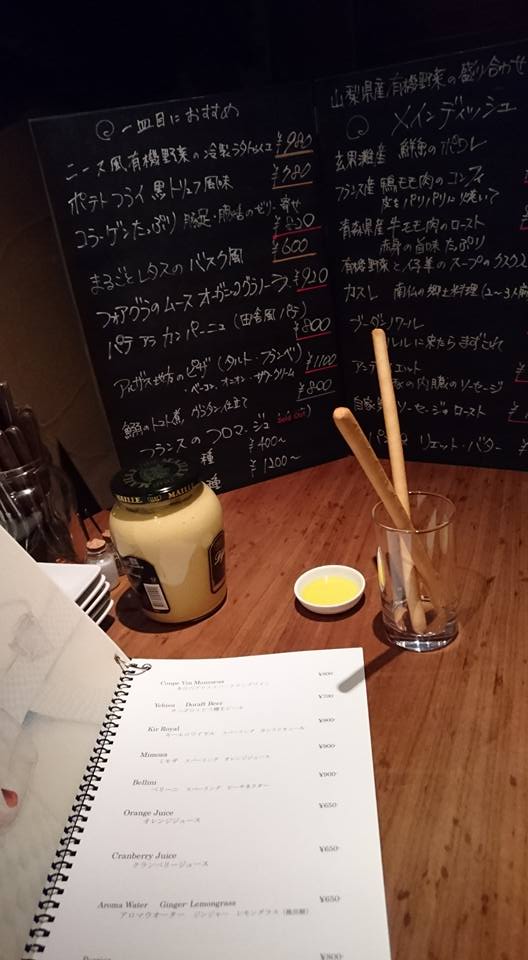 一皿目におすすめ
ニース風有機野菜の冷製ラタトゥイユ
¥980
ポテトフライ黒トリュフ風味
¥780
コラーゲンたっぷり 豚足・豚舌のゼリー寄せ
¥600
まるごとレタスのバスク風
フォアグラのムース オーガニックグラノーラ
¥920
パテ アラ カンパーニュ (田舎風パテ)
¥800
アルザス地方のピザ (タルト・フランベ)
ベーコン、オニオン・サワークリーム
¥1100
のトマト煮 グラタン仕立て
¥800
フランスのフロマージュ
Sold Out
種 ¥400~
種 ¥1200~
山梨県産有機野菜の盛り合わせ
メインディッシュ
玄界灘産 鮮魚のポワレ
フランス産 鴨モモ肉のコンフィ
皮をパリパリに焼いて
青森県産牛モモ肉のロースト
赤身の旨味たっぷり
有機野菜と仔羊のスープのクスクス
カスレ 南仏の郷土料理(2~3人前
ブーダンノワール
ルルに来たらまずこれ
の内臓のソーセージ
自家製ソーセージのロースト
リエット・バター
MAILLE
MAILLE
Coupe Vin Mousseux ¥800-
Yebisu Draft Beer ¥700-
Kir Royal ¥900-
Mimosa ¥900-
ミモザ スパーリング オレンジジュース
Bellini ¥900-
ベリーニ スパーリング ピーチネクター
Orange Juice ¥650-
オレンジジュース
Cranberry Juice ¥650-
クランベリージュース
Aroma Water Ginger Lemongrass ¥650-
アロマウオーター ジンジャー レモングラス (微炭酸)
¥800-